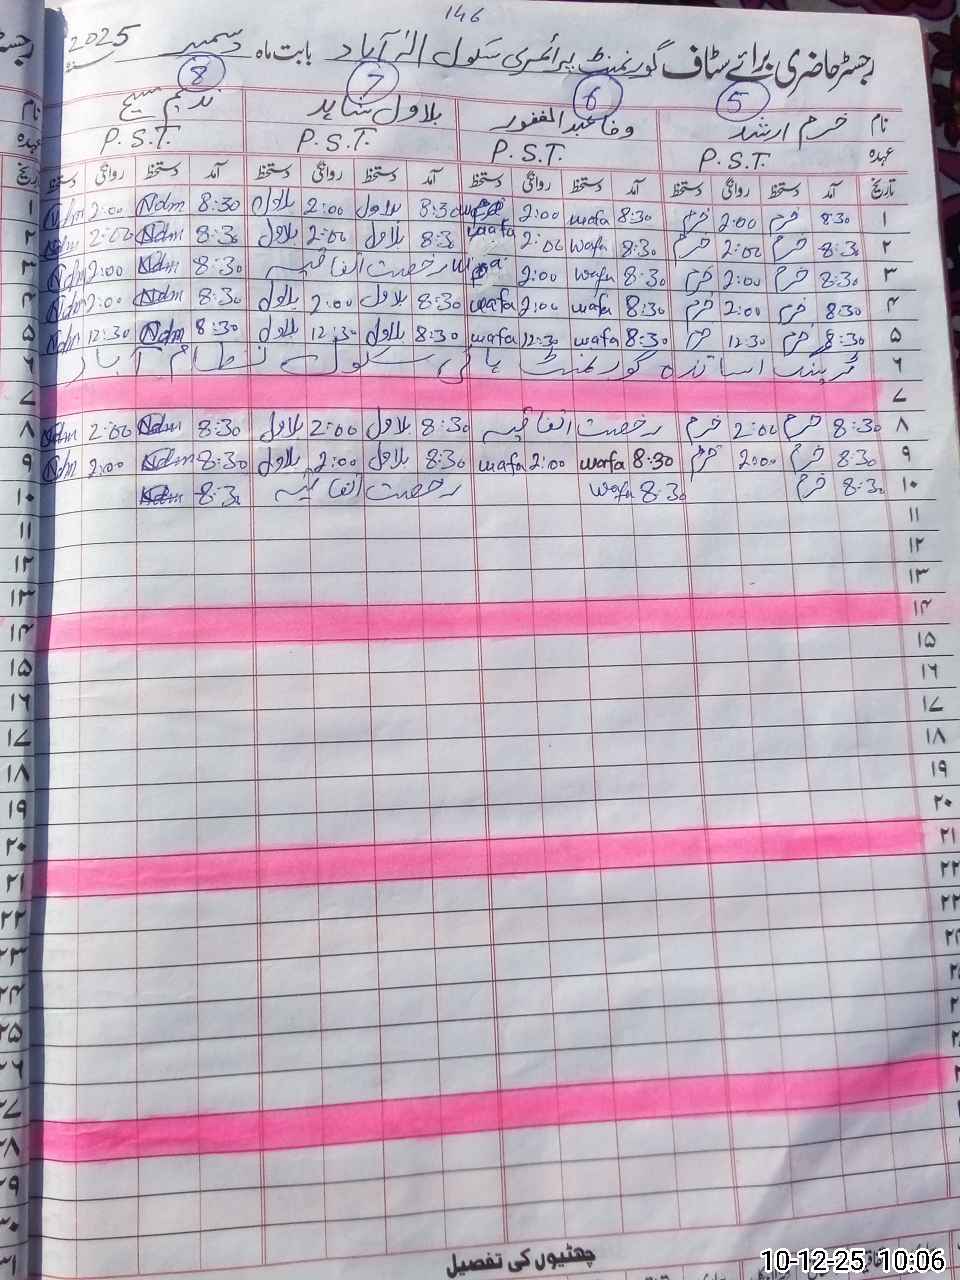 146
رجسٹر حاضری برائے سٹاف گورنمنٹ پرائمری سکول الہٰ آباد بابت ماہ دسمبر 2025
5 6 7 8
نام خرم ارشد وفا عبدالغفور بلاول شاہد ندیم مسیح
عہدہ P.S.T. P.S.T. P.S.T. P.S.T.
تاریخ آمد دستخط روانگی دستخط آمد دستخط روانگی دستخط آمد دستخط روانگی دستخط آمد دستخط روانگی دستخط
۱ 8:30 خرم 2:00 خرم 8:30 wafa 2:00 8:30 بلاول 2:00 بلاول 8:30 Ndm 2:00 Ndm
۲ 8:30 خرم 2:00 خرم 8:30 wafa 2:00 wafa 8:30 بلاول 2:00 بلاول 8:30 Ndm 2:00 Ndm
۳ 8:30 خرم 2:00 خرم 8:30 wafa 2:00 رخصت اتفاقیہ 8:30 Ndm 2:00 Ndm
۴ 8:30 خرم 2:00 خرم 8:30 wafa 2:00 wafa 8:30 بلاول 2:00 بلاول 8:30 Ndm 2:00 Ndm
۵ 8:30 خرم 12:30 خرم 8:30 wafa 12:30 wafa 8:30 بلاول 12:30 بلاول 8:30 Ndm 12:30 Ndm
۶ ٹریننگ اساتذہ گورنمنٹ ہائی سکول نظام آباد
۷
۸ 8:30 خرم 2:00 خرم رخصت اتفاقیہ 8:30 بلاول 2:00 بلاول 8:30 Ndm 2:00 Ndm
۹ 8:30 خرم 2:00 خرم 8:30 wafa 2:00 wafa 8:30 بلاول 2:00 بلاول 8:30 Ndm 2:00 Ndm
۱۰ 8:30 خرم 8:30 wafa رخصت اتفاقیہ 8:30 Ndm
۱۱
۱۲
۱۳
۱۴
۱۵
۱۶
۱۷
۱۸
۱۹
۲۰
۲۱
۲۲
۲۳
۲۴
۲۵
۲۶
۲۷
۲۸
۲۹
۳۰
۳۱
چھٹیوں کی تفصیل
10-12-25 10:06